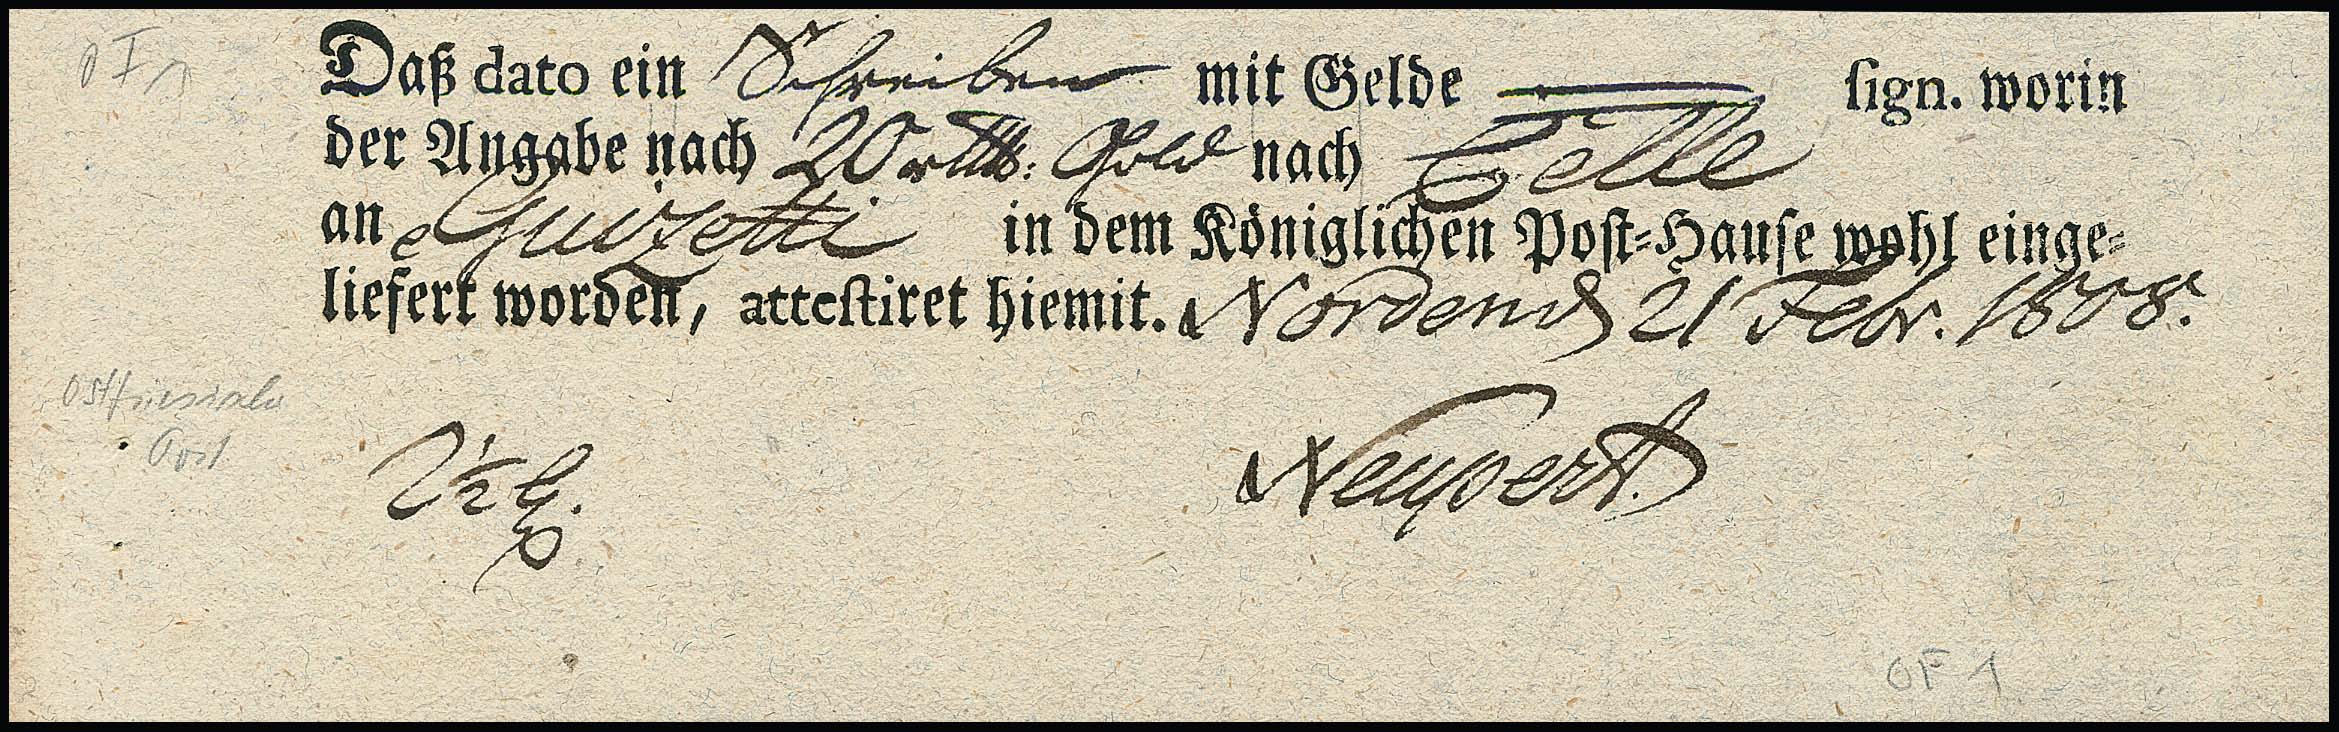 OF 1
Daß dato ein Schreiben mit Gelde sign. worin
der Angabe nach 20 rthlr: Gold nach Celle
an Guizetti in dem Königlichen Post-Hause wohl einge-
liefert worden, attestiret hiemit. Norden d 21 Febr. 1808.
Ostfriesische
Post
Neupert.
OF 1